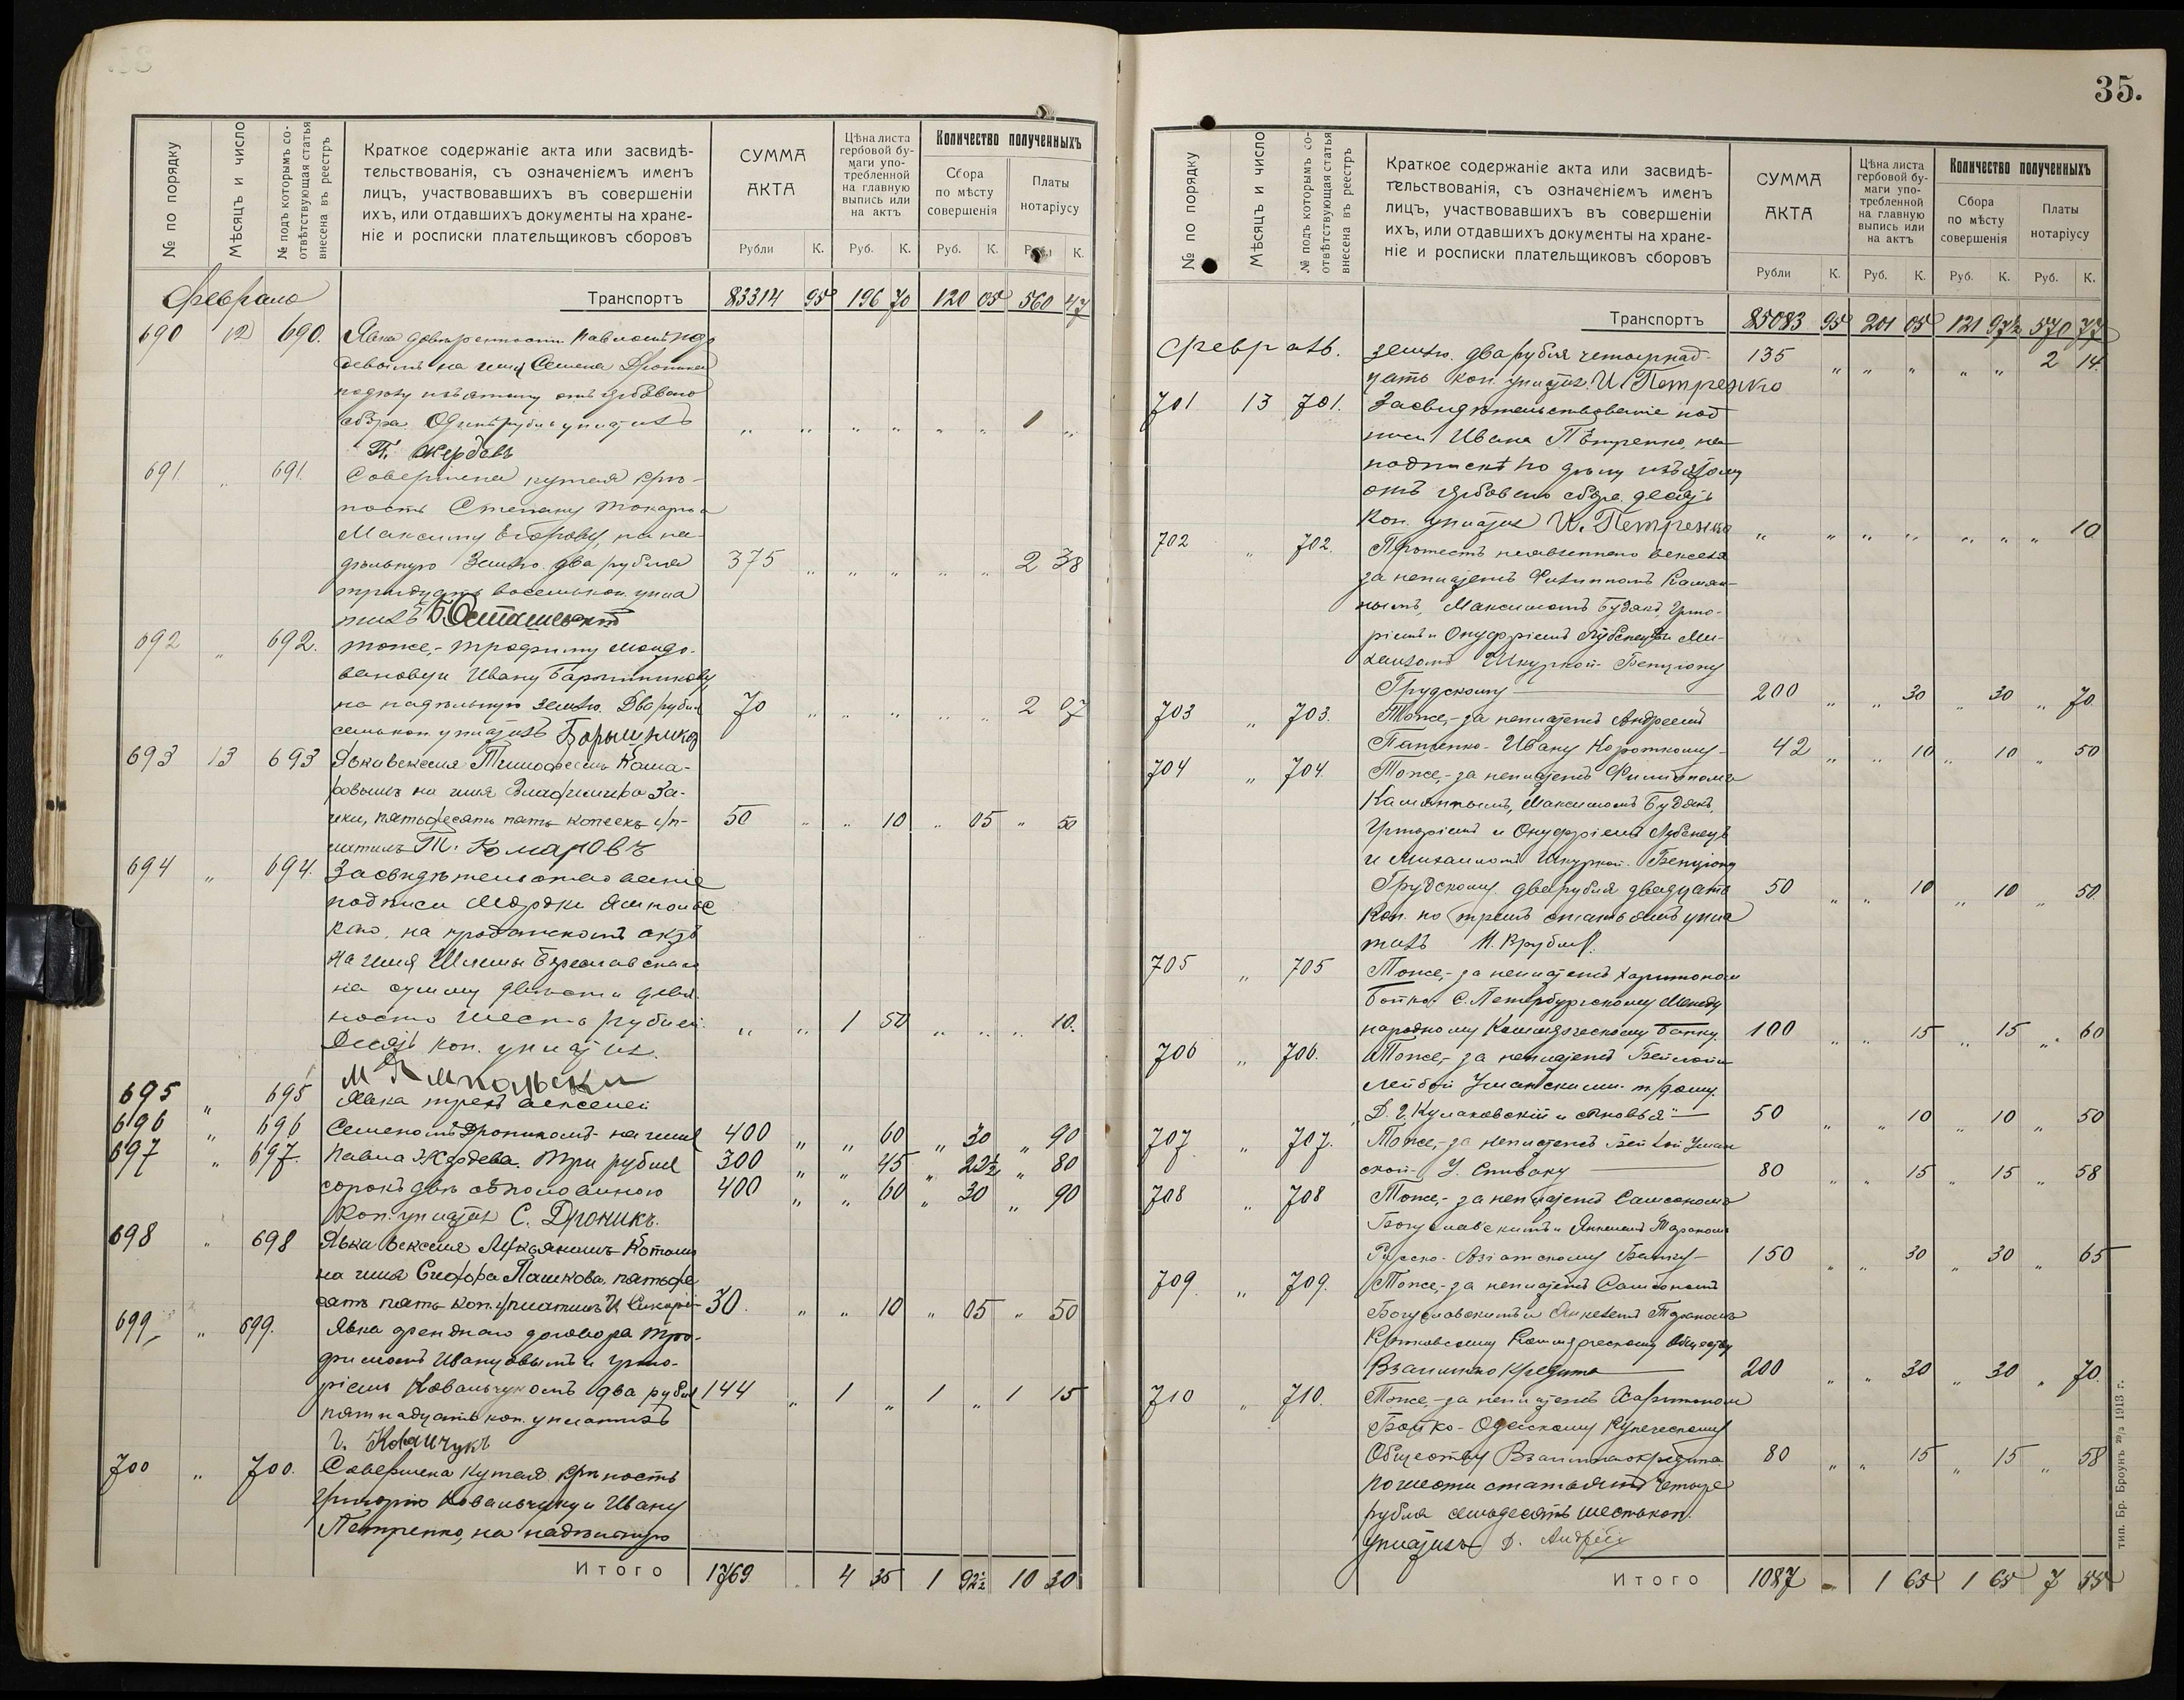 № по порядку
Мѣсяцъ и число
№ подъ которымъ со-
отвѣтствующая статья
внесена въ реестръ
Краткое содержаніе акта или засвидѣ-
тельствованія, съ означеніемъ именъ
лицъ, участвовавшихъ въ совершеніи
ихъ, или отдавшихъ документы на хране-
ніе и росписки плательщиковъ сборовъ
СУММА
АКТА
Рубли К.
Цѣна листа
гербовой бу-
маги упо-
требленной
на главную
выпись или
на актъ
Руб. К.
Количество полученныхъ
Сбора
по мѣсту
совершенія
Руб. К.
Платы
нотаріусу
К.
Февраль
Транспортъ 83314 95 196 70 120 05 560 47
690 12 690. Явка довѣренности Павломъ
на имя Семена Дроника
сбора Одинъ рубль уплатилъ „ „ „ „ „ „ 1 „
П. Жердевъ
691 „ 691. Совершена купчая крѣ-
пость Степану Токарь и
Максиму Егорову, на на-
дѣльную землю. два рубля 375 „ „ „ „ „ 2 38
тридцать восемь коп. упла
тилъ
692 „ 692. тоже,- Трофиму
Ивану Барышникову
на надѣльную землю. Два рубля 70 „ „ „ „ „ 2 07
семь коп. уплатилъ Барышников
693 13 693 Явка векселя Тимофеемъ Кома-
ровымъ на имя Владимира За-
ики, пятьдесятъ пять копеекъ уп- 50 „ „ 10 „ 05 „ 50
латилъ Т. Комаровъ
694 „ 694. Засвидѣтельствованіе
подписи Мордки Ямпольс
каго, на
на имя Шлемы Береславскаго
на сумму двѣсти девя
носто шесть рублей. „ „ 1 50 „ „ „ 10.
Десять коп. уплатил.
М Ямпольски
695 „ 695 Явка трехъ векселей
696 „ 696 Семеномъ Дроникомъ на имя 400 „ „ 60 „ 30 „ 90
697 „ 697. Павла Жердева. три рубля 300 „ „ 45 „ 22½ „ 80
сорокъ двѣ съ половиною 400 „ „ 60 „ 30 „ 90
коп. уплатил С. Дроникъ.
698 „ 698 Явка векселя Лукьяномъ
на имя Сидора Пашкова, пятьде
сятъ пять коп. уплатилъ 30. „ „ 10 „ 05 „ 50
699 „ 699. Явка аренднаго договора Тро-
фимомъ Иванцовымъ и Григо-
ріемъ Ковальчукомъ два рубля 144 „ 1 „ 1 „ 1 15
пятнадцать коп. уплатилъ
Г. Ковальчукъ
700 „ 700. Совершена купчая крѣпость
Григорію Ковальчуку и Ивану
Петренко, на надѣльную
Итого 1769 4 35 1 92½ 10 30
35.
№ по порядку
Мѣсяцъ и число
№ подъ которымъ со-
отвѣтствующая статья
внесена въ реестръ
Краткое содержаніе акта или засвидѣ-
тельствованія, съ означеніемъ именъ
лицъ, участвовавшихъ въ совершеніи
ихъ, или отдавшихъ документы на хране-
ніе и росписки плательщиковъ сборовъ
СУММА
АКТА
Рубли К.
Цѣна листа
гербовой бу-
маги упо-
требленной
на главную
выпись или
на актъ
Руб. К.
Количество полученныхъ
Сбора
по мѣсту
совершенія
Руб. К.
Платы
нотаріусу
Руб. К.
Транспортъ 85083 95 201 05 121 97½ 570 77
Февраль. землю. два рубля четырнад- 135 „ „ „ „ „ 2 14.
цать коп. уплатил. И Петренко
701 13 701. Засвидѣтельствованіе под
писи Ивана Петренко, на
подпискѣ по дѣлу изъятому
отъ гербоваго сбора. десять
коп. уплатил И. Петренко „ „ „ „ „ „ „ 10
702 „ 702. Протестъ векселя
за неплатежъ Филиппомъ Каман-
нымъ, Максимомъ Будакъ, Григо-
ріемъ и Онуфріемъ Лубенецъ и Ми-
хаиломъ Шкуркой- Бенціону
Грудскому 200 „ „ 30 „ 30 „ 70.
703 „ 703. Тоже,- за неплатежъ Андреемъ
Ивану Короткому- 42 „ „ 10 „ 10 „ 50
704 „ 704. Тоже,- за неплатежъ Филиппомъ
Каманнымъ, Максимомъ Будакъ,
Григоріемъ и Онуфріемъ Лубенецъ
и Михаиломъ Шкуркой- Бенціону
Грудскому. два рубля двадцать 50 „ „ 10 „ 10 „ 50.
коп. по тремъ статьямъ упла
тилъ
705 „ 705 Тоже,- за неплатежъ Харитоном
Бойко. С. Петербургскому Между
народному Коммерческому Банку. 100 „ „ 15 „ 15 „ 60
706 „ 706. Тоже,- за неплатежъ Бейлой и
Лейбой Уманскими- т/дому.
„Д. Г. Кулаковскій и сыновья" 50 „ „ 10 „ 10 „ 50
707 „ 707. Тоже,- за неплатежъ Бейлой Уман
ской- У. Спиваку 80 „ „ 15 „ 15 „ 58
708 „ 708 Тоже,- за неплатежъ Самсономъ
Богуславскимъ и Анкелемъ Тараномъ
Русско-Азіатскому Банку- 150 „ „ 30 „ 30 „ 65
709 „ 709. Тоже,- за неплатежъ Самсономъ
Богуславскимъ и Анкелемъ Тараномъ
Коммерческому Обществу
Взаимнаго Кредита 200 „ „ 30 „ 30 „ 70.
710 „ 710. Тоже,- за неплатежъ Харитоном
Бойко- Одесскому Купеческому
Обществу Взаимнаго кредита 80 „ „ 15 „ 15 „ 58
по шести статьямъ четыре
рубля семьдесятъ шесть коп.
уплатилъ
Итого 1087 1 65 1 65 7 55
тип. Бр. Броунъ 1913 г.